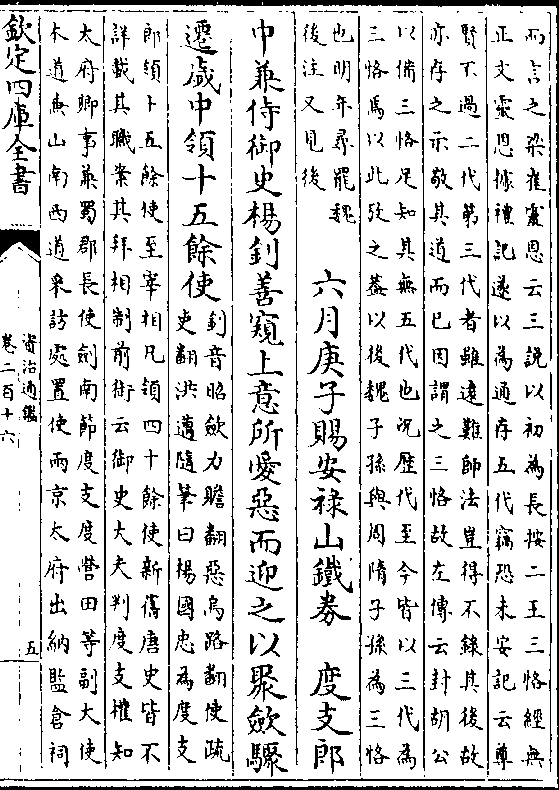 而言之梁崔靈恩云三說以初為長按二王三恪經無
正文靈恩據禮記遂以為通存五代竊恐未安記云尊
賢不過二代第三代者雖遠難師法豈得不錄其後故
亦存之示敬其道而已因謂之三恪故左傳云封胡公
以備三恪足知其無五代也況歴代至今皆以三代為
三恪焉以此攷之葢以後魏子孫與周隋子孫為三恪
也明年尋罷魏
後注又見後
六月庚子賜安禄山鐵券 度支郎
中兼侍御史楊釗善窺上意所愛惡而迎之以聚斂驟
遷歲中領十五餘使
釗音昭斂力贍翻惡烏路翻使疏
吏翻洪邁隨筆曰楊國忠為度支
郎領十五餘使至宰相凡領四十餘使新舊唐史皆不
詳載其職案其拜相制前銜云御史大夫判度支權知
太府卿事兼蜀郡長使劍南節度支度營田等副大使
本道兼山南西道采訪處置使兩京太府出納監倉祠
欽定四庫全書
資治通鑑
卷二百十六
五